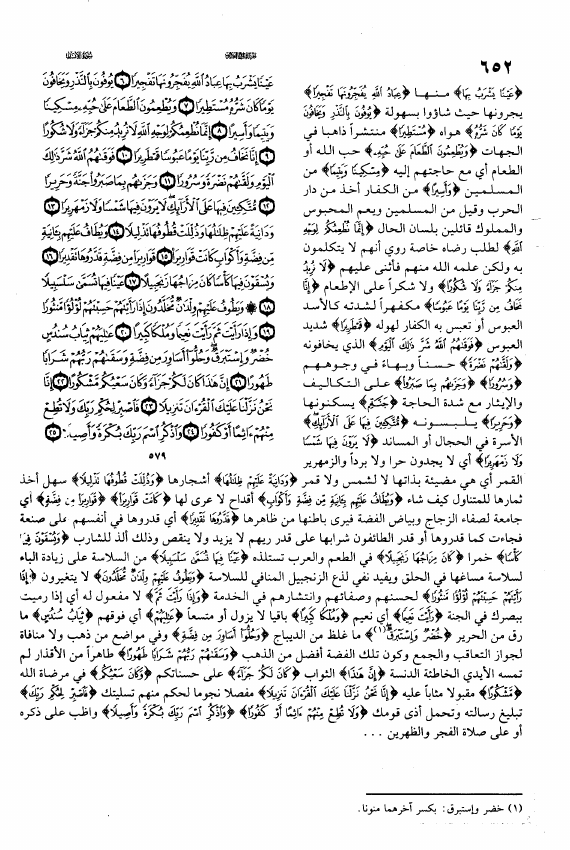 ٦٥٢
عَيْنًا يَشْرَبُ بِهَا عِبَادُ اللَّهِ يُفَجِّرُونَهَا تَفْجِيرًا ٦ يُوفُونَ بِالنَّذْرِ وَيَخَافُونَ
يَوْمًا كَانَ شَرُّهُ مُسْتَطِيرًا ٧ وَيُطْعِمُونَ الطَّعَامَ عَلَىٰ حُبِّهِ مِسْكِينًا
وَيَتِيمًا وَأَسِيرًا ٨ إِنَّمَا نُطْعِمُكُمْ لِوَجْهِ اللَّهِ لَا نُرِيدُ مِنكُمْ جَزَاءً وَلَا شُكُورًا
٩ إِنَّا نَخَافُ مِن رَّبِّنَا يَوْمًا عَبُوسًا قَمْطَرِيرًا ١٠ فَوَقَاهُمُ اللَّهُ شَرَّ ذَٰلِكَ
الْيَوْمِ وَلَقَّاهُمْ نَضْرَةً وَسُرُورًا ١١ وَجَزَاهُم بِمَا صَبَرُوا جَنَّةً وَحَرِيرًا
١٢ مُّتَّكِئِينَ فِيهَا عَلَى الْأَرَائِكِ لَا يَرَوْنَ فِيهَا شَمْسًا وَلَا زَمْهَرِيرًا ١٣
وَدَانِيَةً عَلَيْهِمْ ظِلَالُهَا وَذُلِّلَتْ قُطُوفُهَا تَذْلِيلًا ١٤ وَيُطَافُ عَلَيْهِم بِآنِيَةٍ
مِّن فِضَّةٍ وَأَكْوَابٍ كَانَتْ قَوَارِيرَا ١٥ قَوَارِيرَا مِن فِضَّةٍ قَدَّرُوهَا تَقْدِيرًا ١٦
وَيُسْقَوْنَ فِيهَا كَأْسًا كَانَ مِزَاجُهَا زَنجَبِيلًا ١٧ عَيْنًا فِيهَا تُسَمَّىٰ سَلْسَبِيلًا
١٨ ۞ وَيَطُوفُ عَلَيْهِمْ وِلْدَانٌ مُّخَلَّدُونَ إِذَا رَأَيْتَهُمْ حَسِبْتَهُمْ لُؤْلُؤًا مَّنثُورًا
١٩ وَإِذَا رَأَيْتَ ثَمَّ رَأَيْتَ نَعِيمًا وَمُلْكًا كَبِيرًا ٢٠ عَالِيَهُمْ ثِيَابُ سُندُسٍ
خُضْرٌ وَإِسْتَبْرَقٌ وَحُلُّوا أَسَاوِرَ مِن فِضَّةٍ وَسَقَاهُمْ رَبُّهُمْ شَرَابًا
طَهُورًا ٢١ إِنَّ هَٰذَا كَانَ لَكُمْ جَزَاءً وَكَانَ سَعْيُكُم مَّشْكُورًا ٢٢ إِنَّا
نَحْنُ نَزَّلْنَا عَلَيْكَ الْقُرْآنَ تَنزِيلًا ٢٣ فَاصْبِرْ لِحُكْمِ رَبِّكَ وَلَا تُطِعْ
مِنْهُمْ آثِمًا أَوْ كَفُورًا ٢٤ وَاذْكُرِ اسْمَ رَبِّكَ بُكْرَةً وَأَصِيلًا ٢٥
٥٧٩
﴿عَيْنًا يَشْرَبُ بِهَا﴾ منها ﴿عِبَادُ اللَّهِ يُفَجِّرُونَهَا تَفْجِيرًا﴾
يجرونها حيث شاؤوا بسهولة ﴿يُوفُونَ بِالنَّذْرِ وَيَخَافُونَ
يَوْمًا كَانَ شَرُّهُ﴾ هواه ﴿مُسْتَطِيرًا﴾ منتشراً ذاهبا في
الجهات ﴿وَيُطْعِمُونَ الطَّعَامَ عَلَىٰ حُبِّهِ﴾ حب الله أو
الطعام أي مع حاجتهم إليه ﴿مِسْكِينًا وَيَتِيمًا﴾ من
المسلمين ﴿وَأَسِيرًا﴾ من الكفار أخذ من دار
الحرب وقيل من المسلمين ويعم المحبوس
والمملوك قائلين بلسان الحال ﴿إِنَّمَا نُطْعِمُكُمْ لِوَجْهِ
اللَّهِ﴾ لطلب رضاه خاصة روي أنهم لا يتكلمون
به ولكن علمه الله منهم فأثنى عليهم ﴿لَا نُرِيدُ
مِنكُمْ جَزَاءً وَلَا شُكُورًا﴾ ولا شكراً على الإطعام ﴿إِنَّا
نَخَافُ مِن رَّبِّنَا يَوْمًا عَبُوسًا﴾ مكفهراً لشدته كالأسد
العبوس أو تعبس به الكفار لهوله ﴿قَمْطَرِيرًا﴾ شديد
العبوس ﴿فَوَقَاهُمُ اللَّهُ شَرَّ ذَٰلِكَ الْيَوْمِ﴾ الذي يخافونه
﴿وَلَقَّاهُمْ نَضْرَةً﴾ حسناً وبهاء في وجوههم
﴿وَسُرُورًا﴾ ﴿وَجَزَاهُم بِمَا صَبَرُوا﴾ على التكاليف
والإيثار مع شدة الحاجة ﴿جَنَّةً﴾ يسكنونها
﴿وَحَرِيرًا﴾ يلبسونه ﴿مُّتَّكِئِينَ فِيهَا عَلَى الْأَرَائِكِ﴾
الأسرة في الحجال أو المساند ﴿لَا يَرَوْنَ فِيهَا شَمْسًا
وَلَا زَمْهَرِيرًا﴾ أي لا يجدون حرا ولا برداً والزمهرير
القمر أي هي مضيئة بذاتها لا لشمس ولا قمر ﴿وَدَانِيَةً عَلَيْهِمْ ظِلَالُهَا﴾ أشجارها ﴿وَذُلِّلَتْ قُطُوفُهَا تَذْلِيلًا﴾ سهل أخذ
ثمارها للمتناول كيف شاء ﴿وَيُطَافُ عَلَيْهِم بِآنِيَةٍ مِّن فِضَّةٍ وَأَكْوَابٍ﴾ أقداح لا عرى لها ﴿كَانَتْ قَوَارِيرَا﴾ ﴿قَوَارِيرَا مِن فِضَّةٍ﴾ أي
جامعة لصفاء الزجاج وبياض الفضة فيرى باطنها من ظاهرها ﴿قَدَّرُوهَا تَقْدِيرًا﴾ أي قدروها في أنفسهم على صنعة
فجاءت كما قدروها أو قدر الطائفون شرابها على قدر ريهم لا يزيد ولا ينقص وذلك ألذ للشارب ﴿وَيُسْقَوْنَ فِيهَا
كَأْسًا﴾ خمرا ﴿كَانَ مِزَاجُهَا زَنجَبِيلًا﴾ في الطعم والعرب تستلذه ﴿عَيْنًا فِيهَا تُسَمَّىٰ سَلْسَبِيلًا﴾ من السلاسة على زيادة الباء
لسلاسة مساغها في الحلق ويفيد نفي لذع الزنجبيل المنافي للسلاسة ﴿وَيَطُوفُ عَلَيْهِمْ وِلْدَانٌ مُّخَلَّدُونَ﴾ لا يتغيرون ﴿إِذَا
رَأَيْتَهُمْ حَسِبْتَهُمْ لُؤْلُؤًا مَّنثُورًا﴾ لحسنهم وصفائهم وانتشارهم في الخدمة ﴿وَإِذَا رَأَيْتَ ثَمَّ﴾ لا مفعول له أي إذا رميت
ببصرك في الجنة ﴿رَأَيْتَ نَعِيمًا﴾ أي نعيم ﴿وَمُلْكًا كَبِيرًا﴾ باقيا لا يزول أو متسعاً ﴿عَالِيَهُمْ﴾ أي فوقهم ﴿ثِيَابُ سُندُسٍ﴾ ما
رق من الحرير ﴿خُضْرٌ وَإِسْتَبْرَقٌ﴾(١) ما غلظ من الديباج ﴿وَحُلُّوا أَسَاوِرَ مِن فِضَّةٍ﴾ وفي مواضع من ذهب ولا منافاة
لجواز التعاقب والجمع وكون تلك الفضة أفضل من الذهب ﴿وَسَقَاهُمْ رَبُّهُمْ شَرَابًا طَهُورًا﴾ طاهراً من الأقذار لم
تمسه الأيدي الخاطئة الدنسة ﴿إِنَّ هَٰذَا﴾ الثواب ﴿كَانَ لَكُمْ جَزَاءً﴾ على حسناتكم ﴿وَكَانَ سَعْيُكُم﴾ في مرضاة الله
﴿مَّشْكُورًا﴾ مقبولا مثاباً عليه ﴿إِنَّا نَحْنُ نَزَّلْنَا عَلَيْكَ الْقُرْآنَ تَنزِيلًا﴾ مفصلا نجوما لحكم منهم تسليتك ﴿فَاصْبِرْ لِحُكْمِ رَبِّكَ﴾
تبليغ رسالته وتحمل أذى قومك ﴿وَلَا تُطِعْ مِنْهُمْ آثِمًا أَوْ كَفُورًا﴾ ﴿وَاذْكُرِ اسْمَ رَبِّكَ بُكْرَةً وَأَصِيلًا﴾ واظب على ذكره
أو على صلاة الفجر والظهرين ...
(١) خضر وإستبرق: بكسر آخرهما منونا.